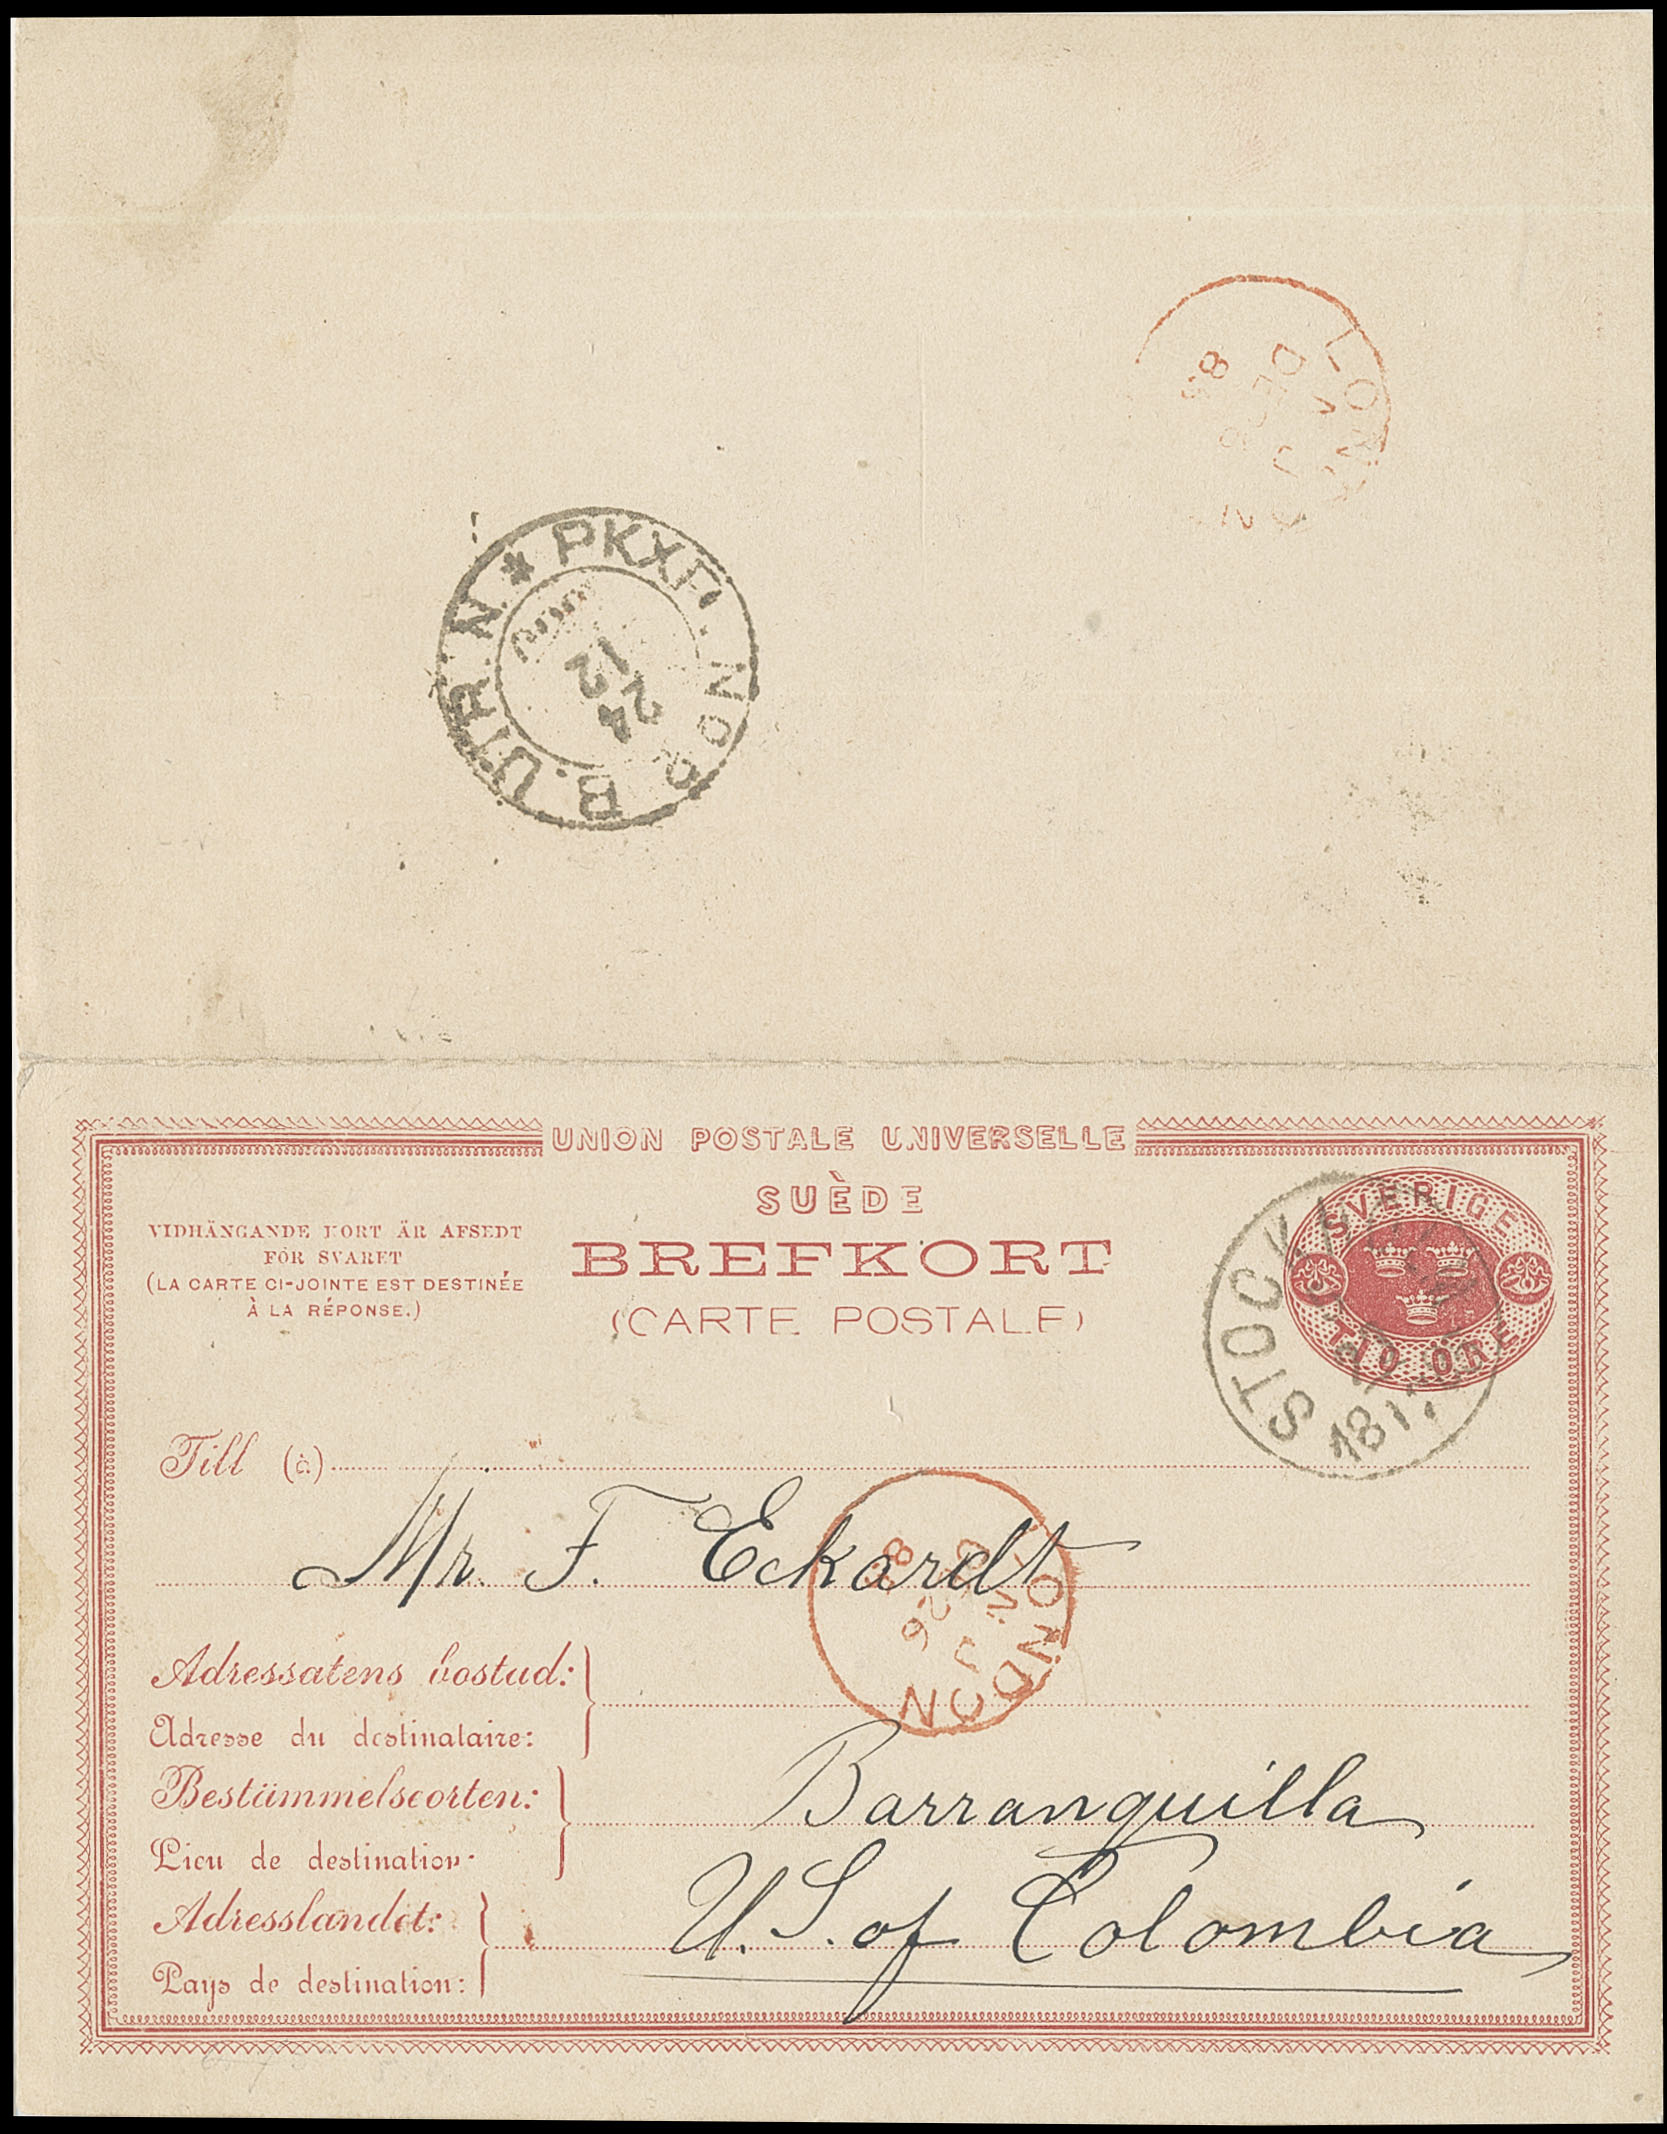 LONDON
* PKXP. No 2 B. UTR. N.
24
12
UNION POSTALE UNIVERSELLE
SUÈDE
VIDHÄNGANDE KORT ÄR AFSEDT
FÖR SVARET
(LA CARTE CI-JOINTE EST DESTINÉE
À LA RÉPONSE.)
BREFKORT
(CARTE POSTALE)
SVERIGE
TIO ÖRE
STOCKHOLM
Till (à)
Mr. F. Eckardt
LONDON
Adressatens bostad:
Adresse du destinataire:
Bestämmelseorten:
Barranquilla
Lieu de destination:
Adresslandet:
U. S. of Colombia
Pays de destination: